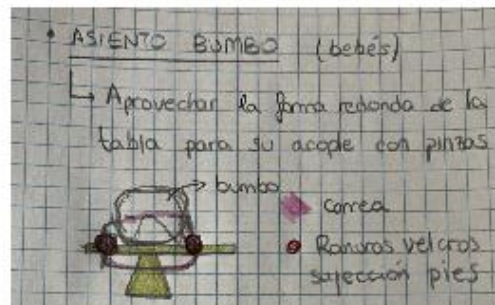 • ASIENTO BUMBO (bebés)
↳ Aprovechar la forma redonda de la
tabla para su acople con pinzas
→ bumbo
correa
Ranuras velcros
sujección pies